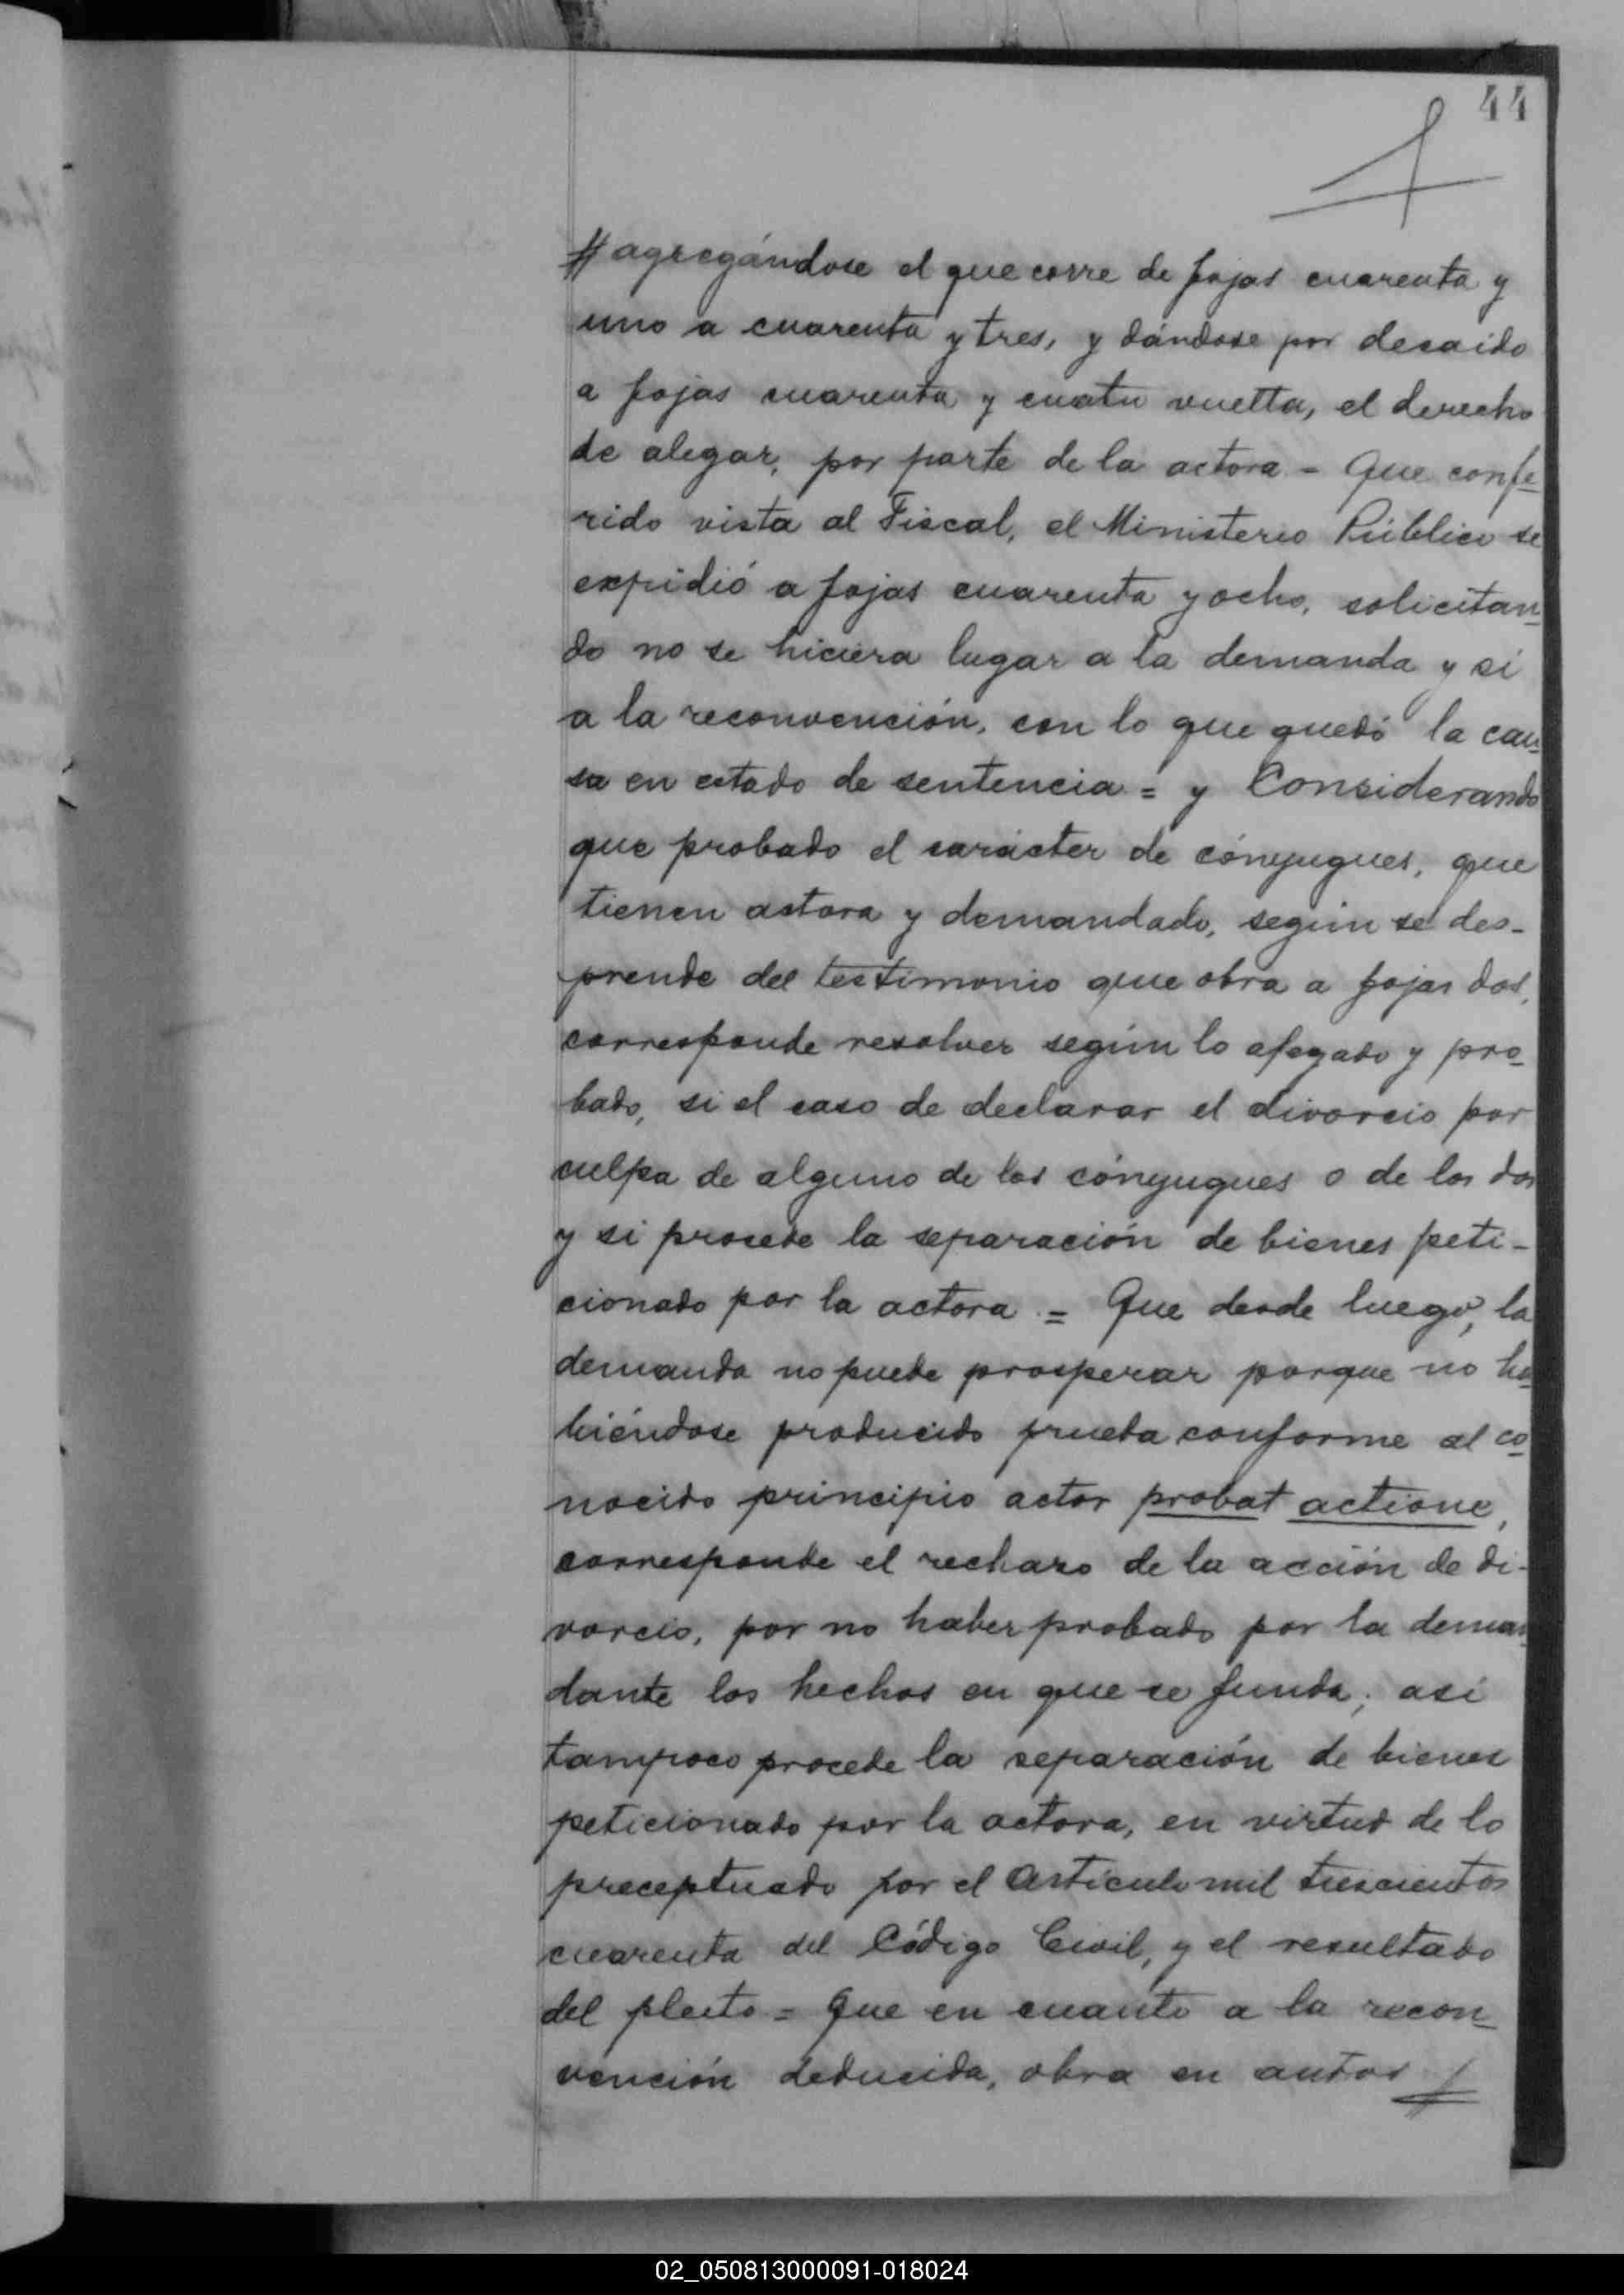 44
# agregándose el que corre de fojas cuarenta y
uno a cuarenta y tres, y dándose por decaido
a fojas cuarenta y cuatro vuelta, el derecho
de alegar, por parte de la actora - Que confe-
rido vista al Fiscal, el Ministerio Público se
expidió a fojas cuarenta y ocho, solicitan-
do no se hiciera lugar a la demanda y si
a la reconvención, con lo que quedó la cau-
sa en estado de sentencia = y Considerando
que probado el carácter de cónyugues, que
tienen actora y demandado, según se des-
prende del testimonio que obra a fojas dos,
corresponde resolver según lo alegado y pro-
bado, si el caso de declarar el divorcio por
culpa de alguno de los cónyugues o de los dos
y si procede la separación de bienes peti-
cionado por la actora = Que desde luego, la
demanda no puede prosperar porque no ha-
biéndose producido prueba conforme al co-
nocido principio actor probat actione,
corresponde el rechazo de la acción de di-
vorcio, por no haber probado por la deman-
dante los hechos en que se funda; asi
tampoco procede la separación de bienes
peticionado por la actora, en virtud de lo
preceptuado por el Artículo mil trescientos
cuarenta del Código Civil, y el resultado
del pleito = Que en cuanto a la recon-
vención deducida, obra en autos #
02_050813000091-018024